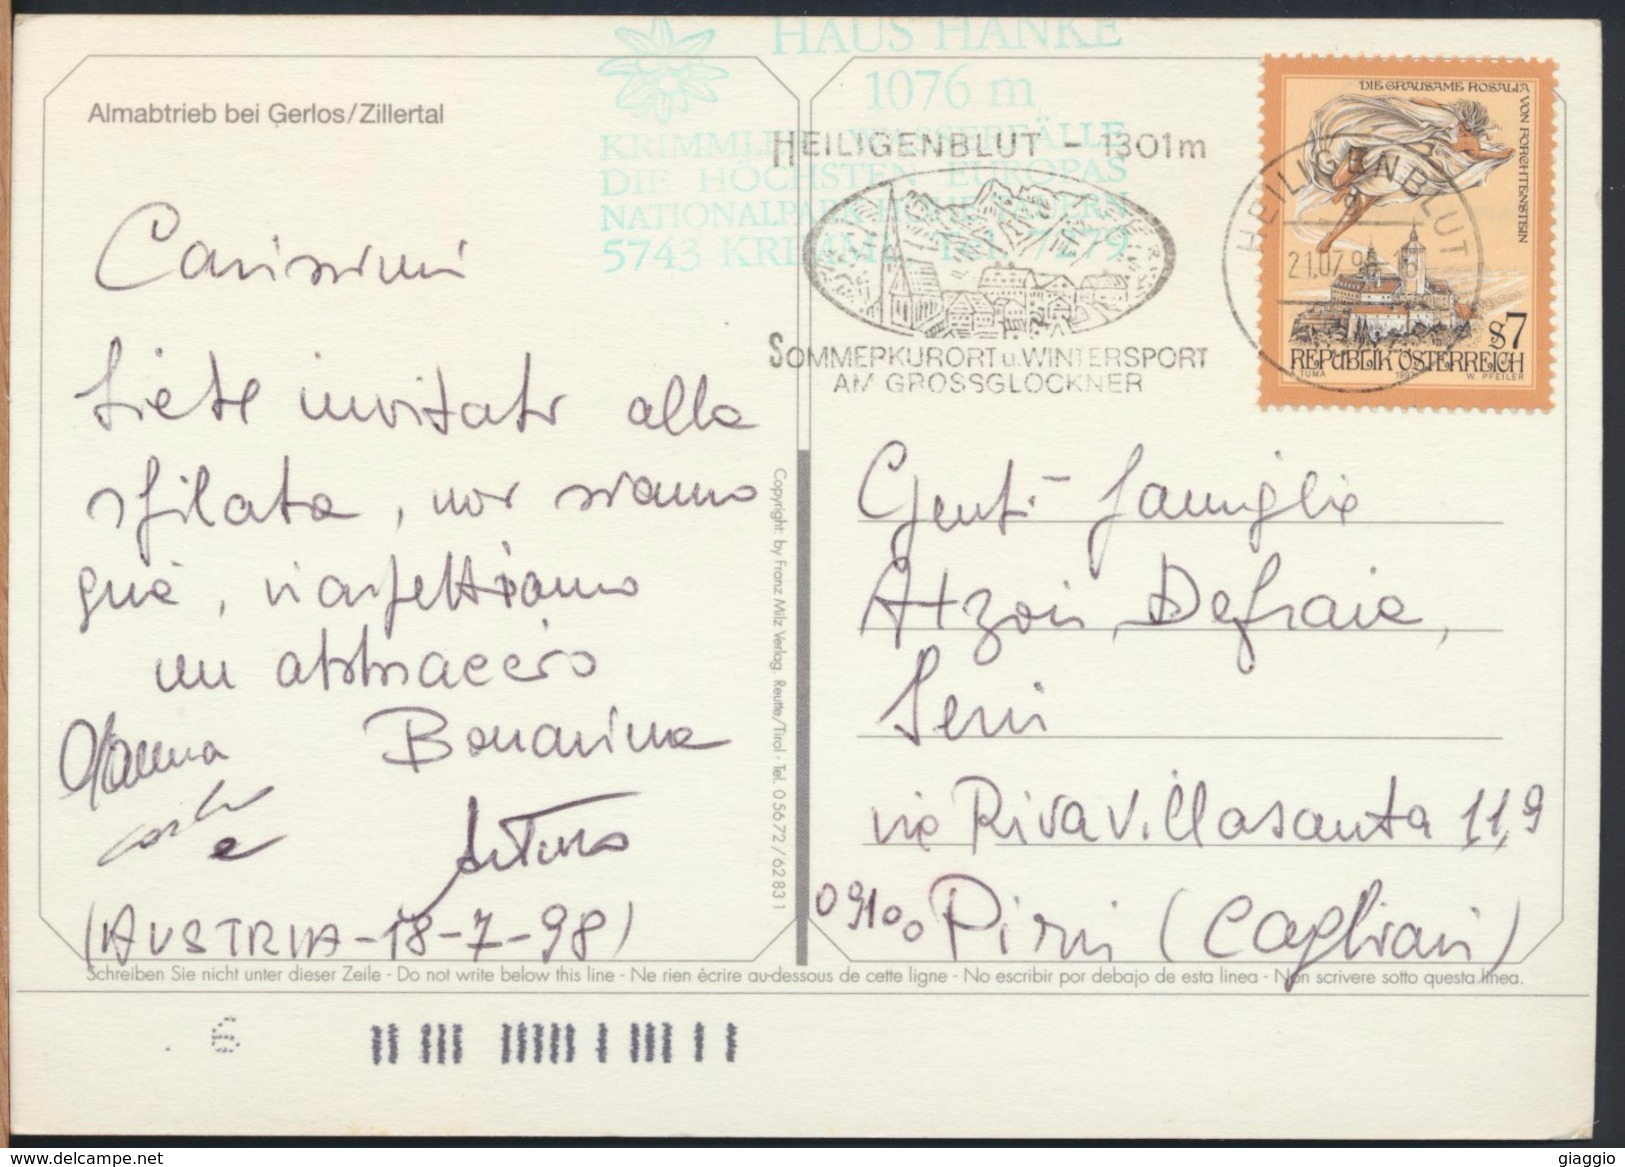 HAUS HANKE
1076 m
KRIMMLER WASSERFÄLLE
DIE HÖCHSTEN EUROPAS
NATIONALPARK HOHE TAUERN
5743 KRIMML Tel. 7279
Almabtrieb bei Gerlos/Zillertal
HEILIGENBLUT - 1301m
SOMMERKURORT u. WINTERSPORT
AM GROSSGLOCKNER
HEILIGENBLUT
21.07.98
DIE GRAUSAME ROSALIA
VON FORCHTENSTEIN
S7
REPUBLIK ÖSTERREICH
A. TUMA 1997 W. PFEILER
Carissimi
Siete invitati alla
sfilata, noi siamo
già, vi aspettiamo
un abbraccio
Bonarina
Arturo
(AUSTRIA-18-7-98)
Copyright: by Franz Milz Verlag. Reutte/Tirol - Tel. 0 56 72 / 62 83 1
Gent. famiglie
Atzori, Defraia,
Serri
via Riva Villasanta 119
09100 Pirri (Cagliari)
Schreiben Sie nicht unter dieser Zeile - Do not write below this line - Ne rien écrire au-dessous de cette ligne - No escribir por debajo de esta linea - Non scrivere sotto questa linea.
www.delcampe.net
giaggio